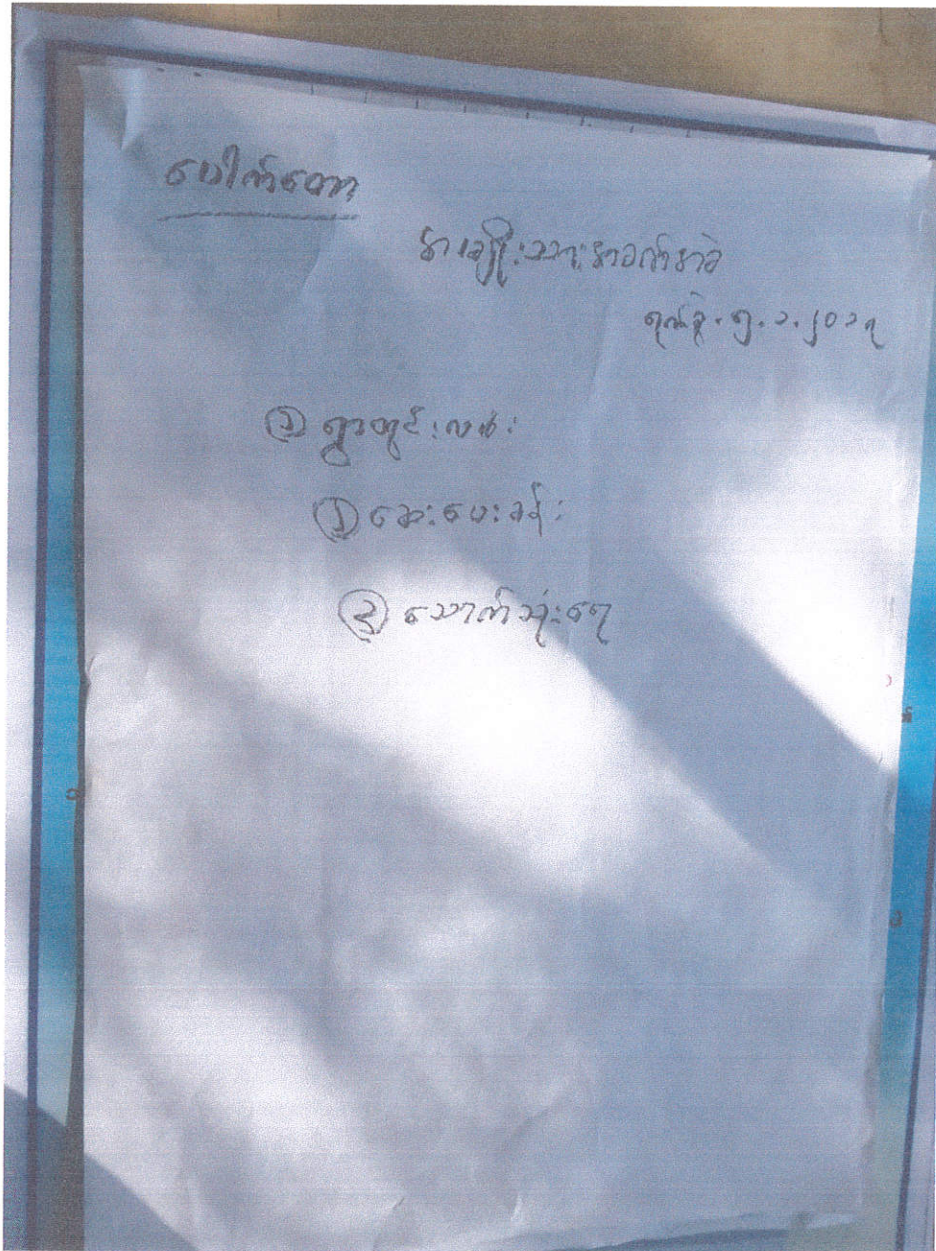 ပေါက်တော
အမျိုးသားအခက်အခဲ
ရက်စွဲ. ၅.၁.၂၀၁၇
① ရွာတွင်းလမ်း
② ဆေးပေးခန်း
③ သောက်သုံးရေ